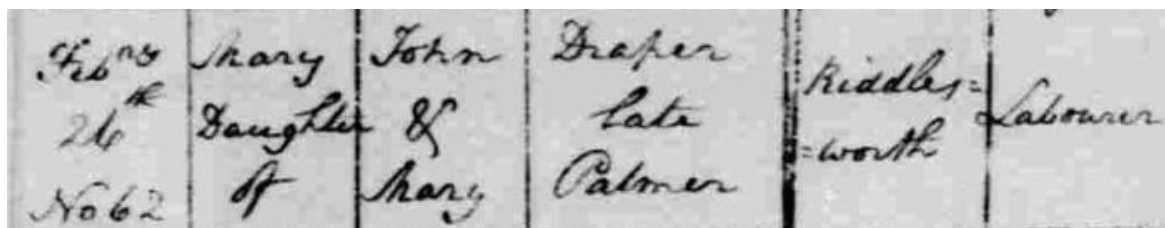 Feb^ry
26^th
No 62
Mary
Daughter
of
John
&
Mary
Draper
late
Palmer
Riddles=
=worth
Labourer